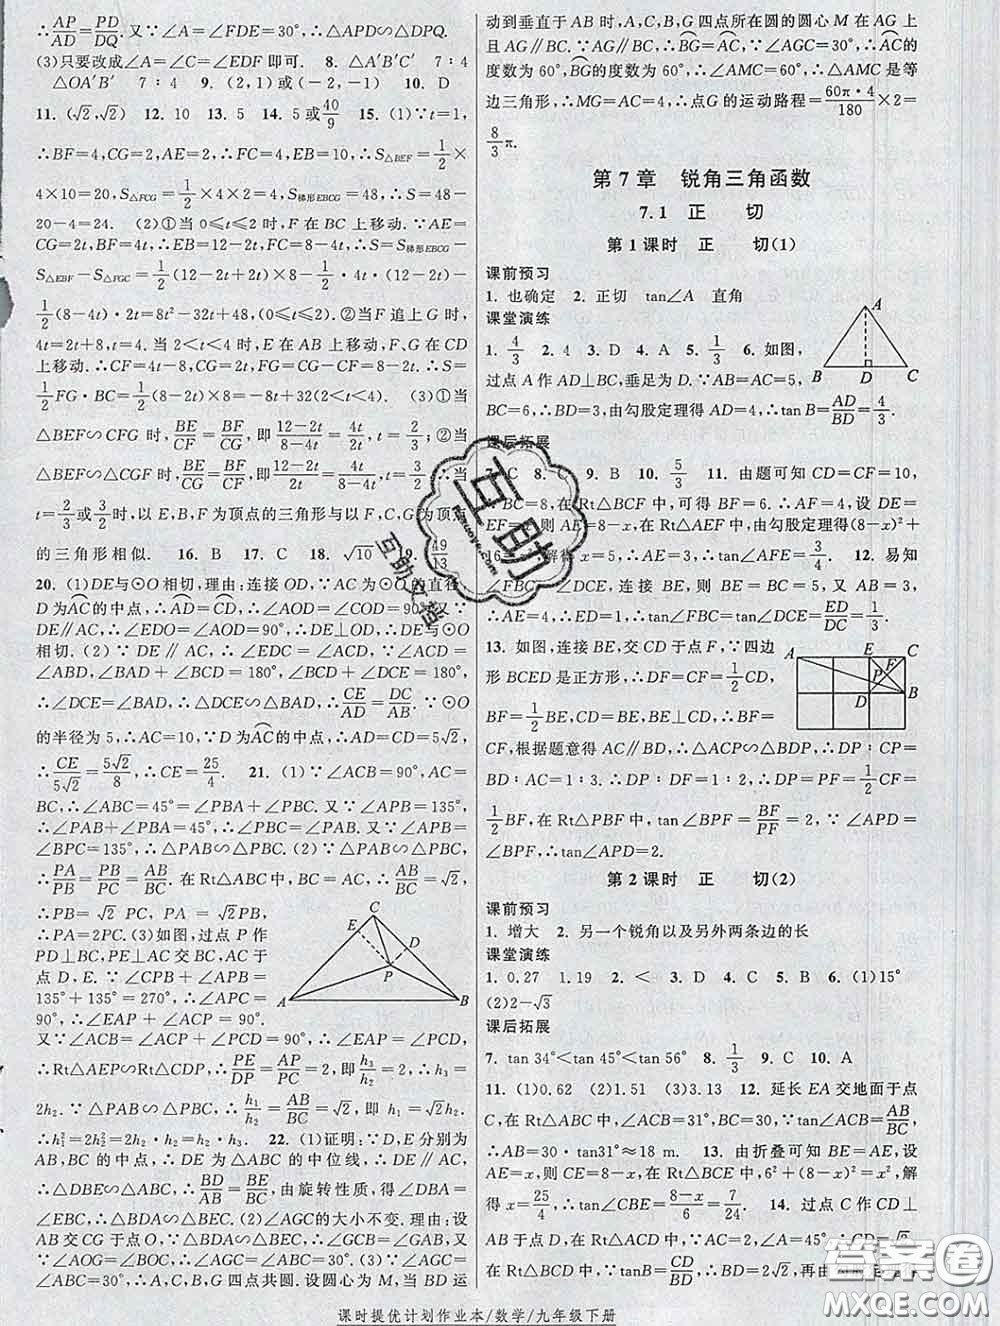 ∴AP/AD=PD/DQ. 又∵∠A=∠FDE=30°,∴△APD∽△DPQ.
(3)只要改成∠A=∠C=∠EDF即可. 8. △A′B′C′ 7∶4
△OA′B′ 7∶4 9. (2,1)或(-2,-1) 10. D
11. (√2,√2) 12. 10 13. 5 14. 5或40/9 15. (1)∵t=1,
∴BF=4,CG=2,AE=2,∴FC=4,EB=10,∴S△BEF=1/2×
4×10=20,S△FCG=1/2×4×2=4,S梯形EBCG=48,∴S=48-
20-4=24. (2)①当0≤t≤2时,F在BC上移动.∵AE=
CG=2t,BF=4t,∴EB=12-2t,FC=8-4t,∴S=S梯形EBCG-
S△EBF-S△FGC=1/2(12-2t+2t)×8-1/2·4t(12-2t)-
1/2(8-4t)·2t=8t²-32t+48,(0≤t≤2).②当F追上G时,
4t=2t+8,解得t=4.当2<t<4时,E在AB上移动,F、G在CD
上移动.∴CF=4t-8,CG=2t,∴FG=2t-(4t-8)=8-2t,∴S=
1/2FG·BC=1/2(8-2t)×8=-8t+32(2<t<4). (3)①当
△BEF∽△CFG时,BE/CF=BF/CG,即(12-2t)/(8-4t)=4t/2t,t=2/3;②当
△BEF∽△CGF时,BE/CG=BF/CF,即(12-2t)/2t=4t/(8-4t),t=3/2.∴当
t=2/3或3/2时,以E、B、F为顶点的三角形与以F、C、G为顶点
的三角形相似. 16. B 17. C 18. √10 19. 49/13
20. (1)DE与⊙O相切,理由:连接OD,∵AC为⊙O的直径,
D为AC的中点,∴AD=CD,∴∠AOD=∠COD=90°,又∵
DE∥AC,∴∠EDO=∠AOD=90°,∴DE⊥OD,∴DE与⊙O
相切. (2)∵DE∥AC,∴∠EDC=∠ACD,∵∠ACD=
∠ABD,∵∠DCE+∠BCD=180°,∠BAD+∠BCD=180°,
∴∠DCE=∠BAD,∴△DCE∽△BAD,∴CE/AD=DC/AB.∵⊙O
的半径为5,∴AC=10,∵D为AC的中点,∴AD=CD=5√2,
∴CE/5√2=5√2/8,∴CE=25/4. 21. (1)∵∠ACB=90°,AC=
BC,∴∠ABC=45°=∠PBA+∠PBC.又∵∠APB=135°,
∴∠PAB+∠PBA=45°,∴∠PBC=∠PAB.又∵∠APB=
∠BPC=135°,∴△PAB∽△PBC. (2)∵△PAB∽△PBC,
∴PA/PB=PB/PC=AB/BC.在Rt△ABC中,BC=AC,∴AB/BC=√2,
∴PB=√2 PC, PA=√2PB,
∴PA=2PC. (3)如图,过点P作
PD⊥BC,PE⊥AC交BC、AC于
点D,E.∵∠APB+∠BPC=
135°+135°=270°,∴∠APC=
90°,∴∠EAP+∠ACP=90°.
又∵∠ACB=∠ACP+∠PCD=90°,∴∠EAP=∠PCD,
∴Rt△AEP∽Rt△CDP,∴PE/DP=AP/PC=2,即h₃/h₂=2,∴h₃=
2h₂.∵△PAB∽△PBC,∴h₁/h₂=AB/BC=√2,即h₁=√2h₂,
∴h₁²=2h₂²=2h₂·h₂=h₂·h₃. 22. (1)证明:∵D,E分别为
AB,BC的中点,∴DE为△ABC的中位线,∴DE∥AC,
∴△DBE∽△ABC,∴BD/AB=BE/BC,由旋转性质,得∠DBA=
∠EBC,∴△BDA∽△BEC. (2)∠AGC的大小不变.理由:设
AB交CG于点O,∵△DBA∽△EBC,∴∠GAB=∠BCO,又
∵∠AOG=∠BOC,∴∠AGC=∠ABC=30°. (3)∵∠AGC=
∠ABC=30°,∴A,C,B,G四点共圆.设圆心为M,当BD运
动到垂直于AB时,A,C,B,G四点所在圆的圆心M在AG上
且AG∥BC.∵AG∥BC,∴BG=AC,∵∠AGC=30°,∴AC的
度数为60°,BG的度数为60°,∴∠AMC=60°,∴△AMC是等
边三角形,∴MG=AC=4,∴点G的运动路程=60π·4/180×2=
8/3π.
第7章 锐角三角函数
7.1 正 切
第1课时 正 切(1)
课前预习
1. 也确定 2. 正切 tan∠A 直角
课堂演练
1. 4/3 2. 4 3. D 4. A 5. 1/3 6. 如图,
过点A作AD⊥BC,垂足为D.∵AB=AC=5,
BC=6,∴BD=3,由勾股定理得AD=4,∴tan B=AD/BD=4/3.
课后拓展
7. C 8. C 9. B 10. 5/3 11. 由题可知CD=CF=10,
BC=8,在Rt△BCF中,可得BF=6.∴AF=4,设DE=
EF=x,则AE=8-x,在Rt△AEF中,由勾股定理得(8-x)²+
16=x²,解得x=5,∴AE=3,∴tan∠AFE=3/4. 12. 易知
∠FBC=∠DCE,连接BE,则BE=BC=5,∵AB=3,
∴AE=4,∴ED=1,∴tan∠FBC=tan∠DCE=ED/DC=1/3.
13. 如图,连接BE,交CD于点F,∵四边
形BCED是正方形,∴DF=CF=1/2CD,
BF=1/2BE,CD=BE,BE⊥CD,∴BF=
CF,根据题意得AC∥BD,∴△ACP∽△BDP,∴DP∶CP=
BD∶AC=1∶3.∴DP∶DF=1∶2,∴DP=PF=1/2CF=
1/2BF,在Rt△PBF中,tan∠BPF=BF/PF=2,∵∠APD=
∠BPF,∴tan∠APD=2.
第2课时 正 切(2)
课前预习
1. 增大 2. 另一个锐角以及另外两条边的长
课堂演练
1. 0.27 1.19 2. < 3. D 4. C 5. B 6. (1)15°
(2)2-√3
课后拓展
7. tan 34°<tan 45°<tan 56° 8. 1/3 9. C 10. A
11. (1)0.62 (2)1.51 (3)3.13 12. 延长EA交地面于点
C,在Rt△ABC中,∠ACB=31°,BC=30,∵tan∠ACB=AB/BC,
∴AB=30·tan31°≈18 m. 13. 由折叠可知BE=AE,设
AE=x,则CE=8-x,在Rt△BCE中,6²+(8-x)²=x²,解
得x=25/4,∴tan∠CBE=(8-x)/6=7/24. 14. 过点C作CD⊥
AB于点D,∵∠A=45°,∴CD=AD=
在Rt△BCD中,∵tanB=CD/BD,∴BD=2√2,再由勾股定理
A B C D E P
A B D C
A E C P D B
互助
互助文档
答案圈
课时提优计划作业本/数学/九年级下册